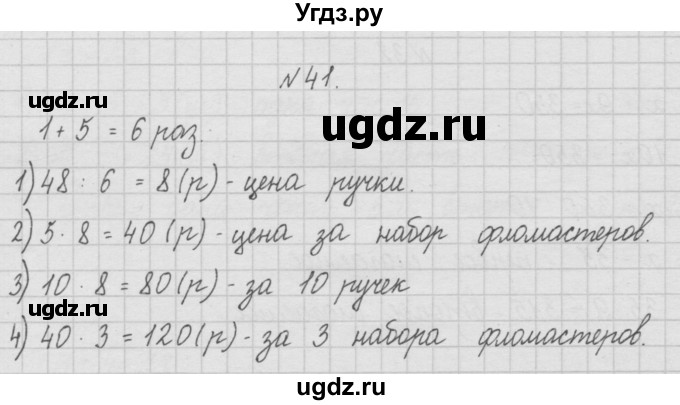 Угдз.ру
№ 41.
ugdz.ru
ugdz.ru
1 + 5 = 6 раз.
1) 48 : 6 = 8 (р) - цена ручки.
ugdz.ru
2) 5 · 8 = 40 (р) - цена за набор фломастеров.
3) 10 · 8 = 80 (р) - за 10 ручек
ugdz.ru
4) 40 · 3 = 120 (р) - за 3 набора фломастеров.
ugdz.ru
ugdz.ru